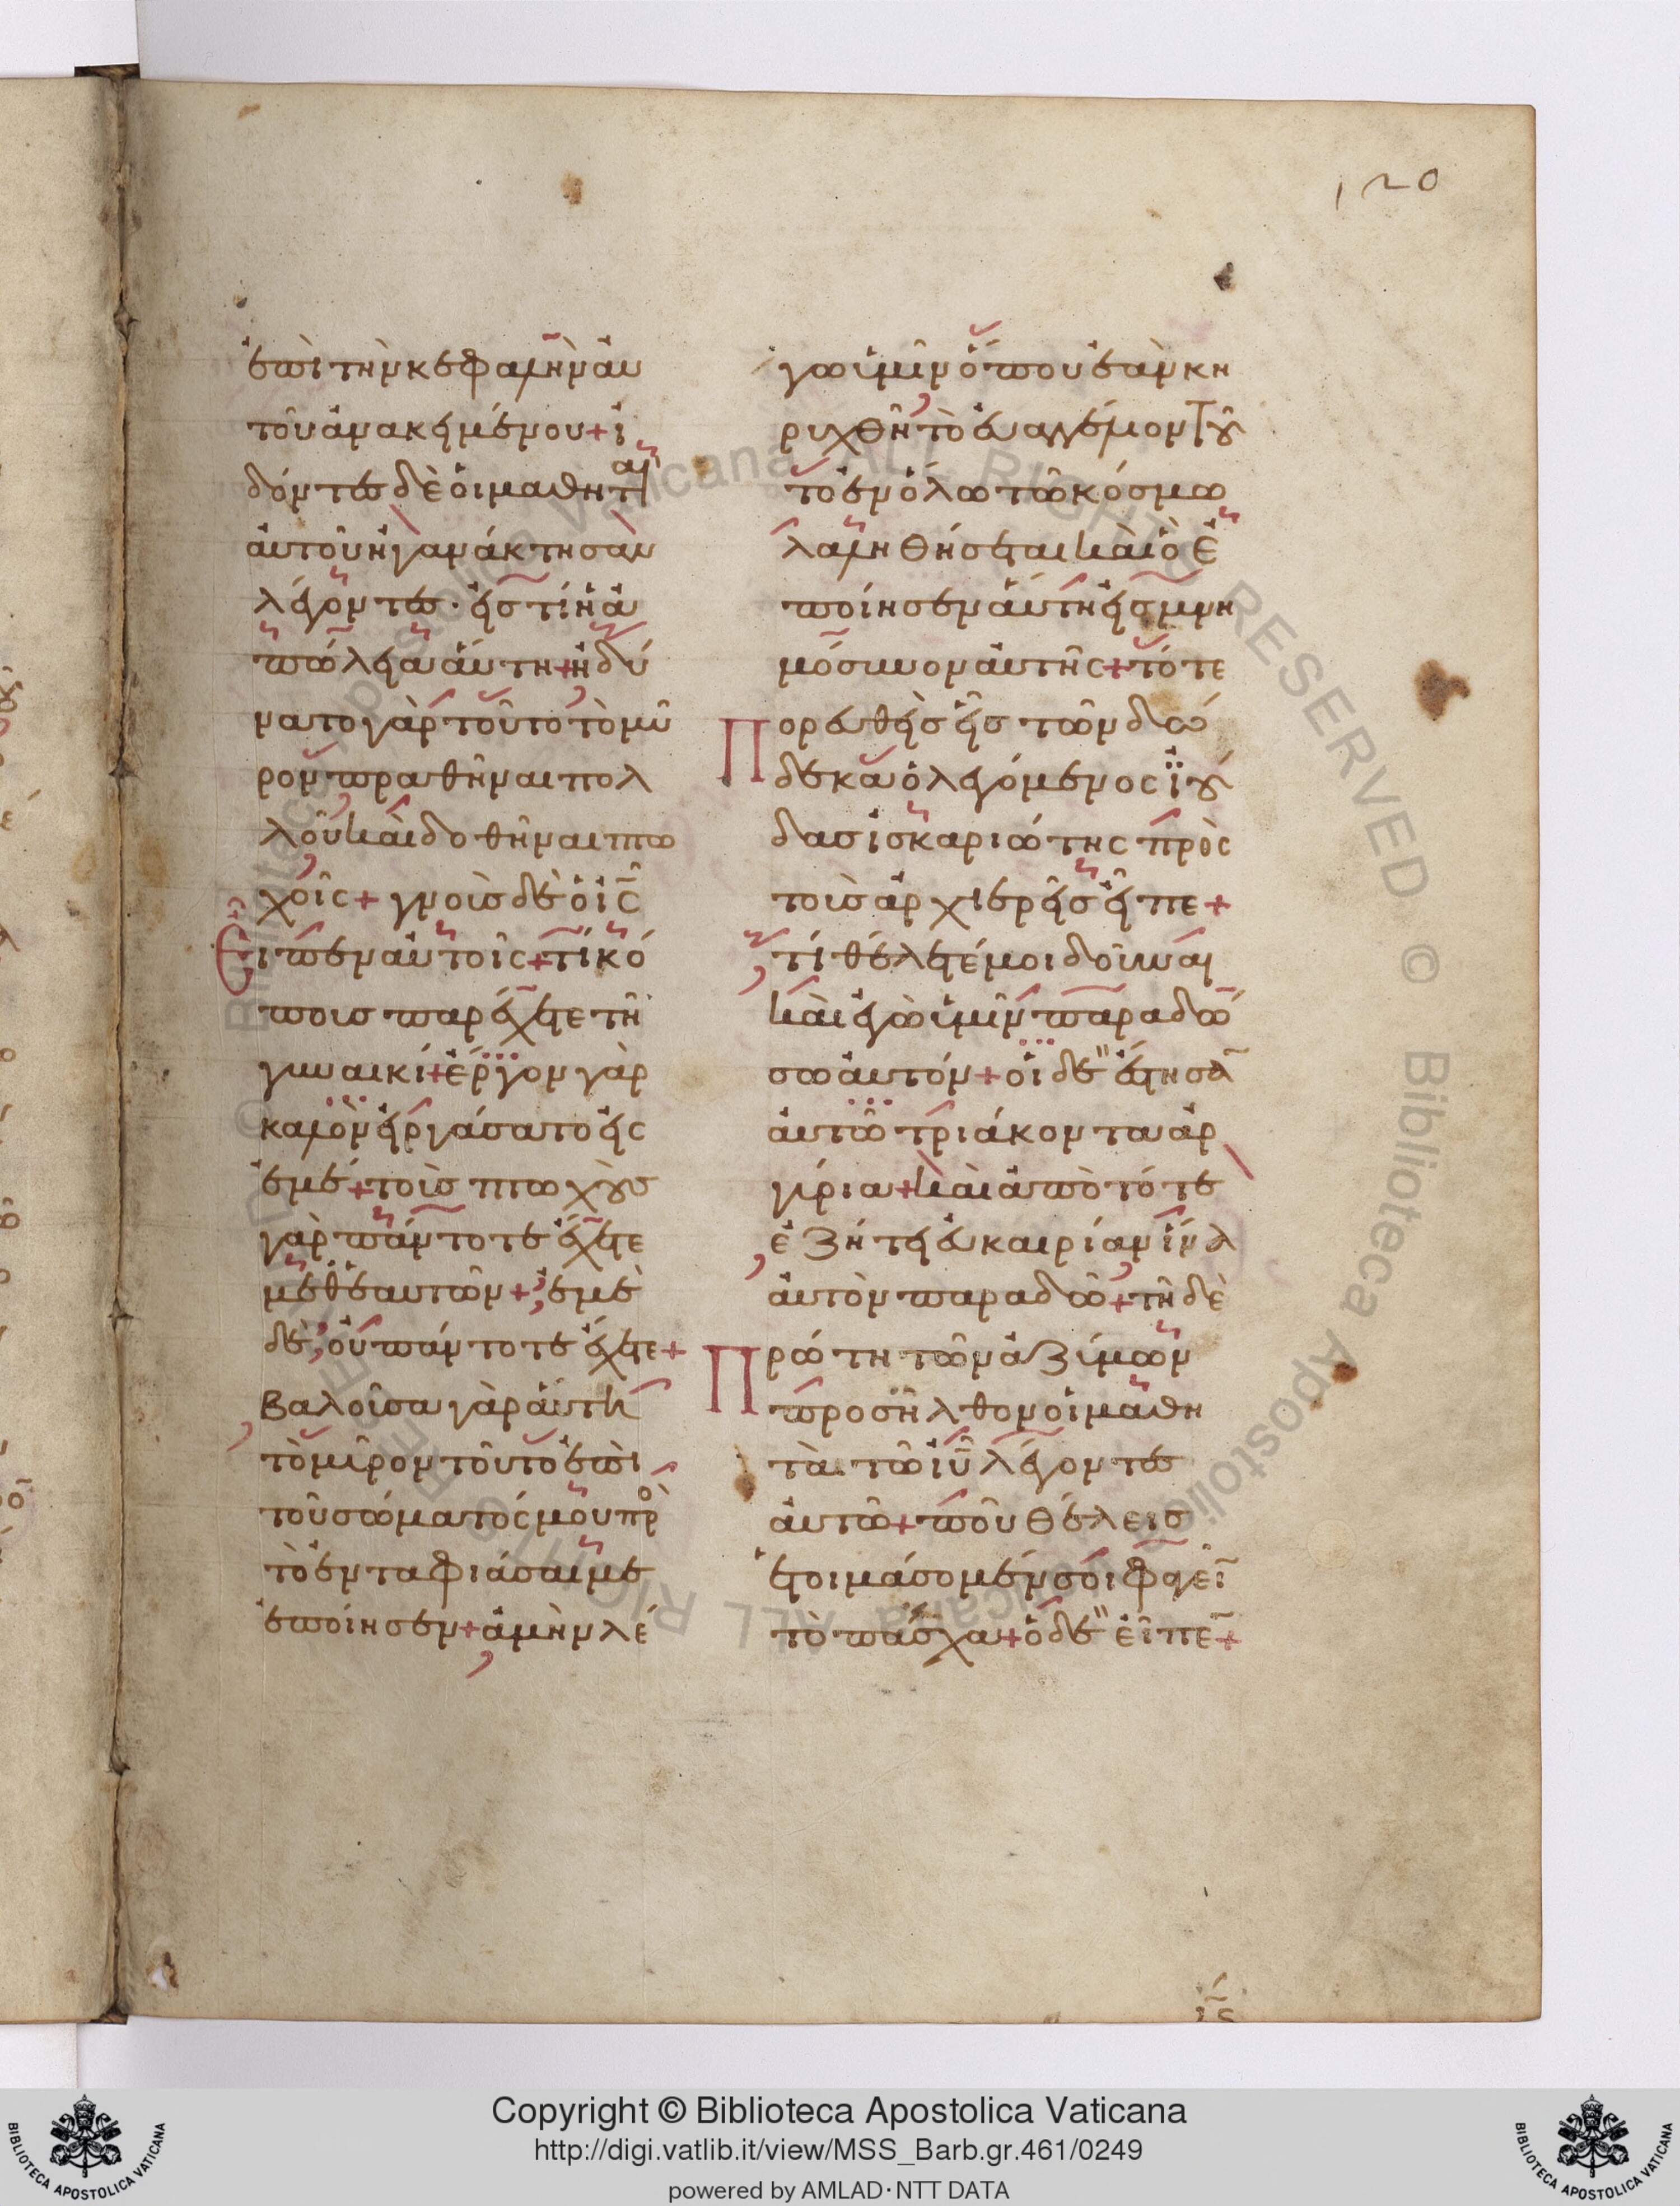 120
ἐπὶ τὴν κεφαλὴν αὐ
τοῦ ἀνακειμένου + ἰ
δόντες δὲ οἱ μαθηταὶ
αὐτοῦ ἠγανάκτησαν
λέγοντες · εἰς τί ἡ ἀ
πώλεια αὕτη + ἠδύ
νατο γὰρ τοῦτο τὸ μύ
ρον πραθῆναι πολ
λοῦ καὶ δοθῆναι πτω
χοῖς + γνοὺς δὲ ὁ ις
Εἶπεν αὐτοῖς + τί κό
πους παρέχετε τῇ
γυναικί + ἔργον γὰρ
καλὸν εἰργάσατο εἰς
ἐμέ + τοὺς πτωχοὺς
γὰρ πάντοτε ἔχετε
μεθ' ἑαυτῶν + ἐμὲ
δὲ, οὐ πάντοτε ἔχετε +
βαλοῦσα γὰρ αὕτη
τὸ μύρον τοῦτο ἐπὶ
τοῦ σώματός μου πρὸ
τὸ ἐνταφιάσαι με
ἐποίησεν + ἀμὴν λέ
γω ὑμῖν ὅπου ἐὰν κη
ρυχθῇ τὸ εὐαγγέλιον τοῦ
το ἐν ὅλω τῶ κόσμω
λαληθήσεται καὶ ὃ ἐ
ποίησεν αὕτη εἰς μνη
μόσυνον αὐτῆς + τότε
Πορευθεὶς εἷς τῶν δώ
δεκα ὁ λεγόμενος ϊού
δας ἰσκαριώτης πρὸς
τοὺς ἀρχιερεῖς εἶπε +
τί θέλετέ μοι δοῦναι
καὶ ἐγὼ ὑμῖν παραδώ
σω αὐτόν + οἱ δὲ ἔστησαν
αὐτῶ τριάκοντα ἀρ
γύρια + καὶ ἀπὸ τότε
ἐζήτει εὐκαιρίαν ἵνα
αὐτὸν παραδῶ + τῇ δὲ
Πρώτη τῶν ἀζύμων
προσῆλθον οἱ μαθη
ταὶ τῶ ιυ λέγοντες
αὐτῶ + ποῦ θέλεις
ἑτοιμάσομέν σοι φαγεῖν
τὸ πάσχα + ὁ δὲ εἶπεν +
ις
Copyright © Biblioteca Apostolica Vaticana
http://digi.vatlib.it/view/MSS_Barb.gr.461/0249
powered by AMLAD·NTT DATA